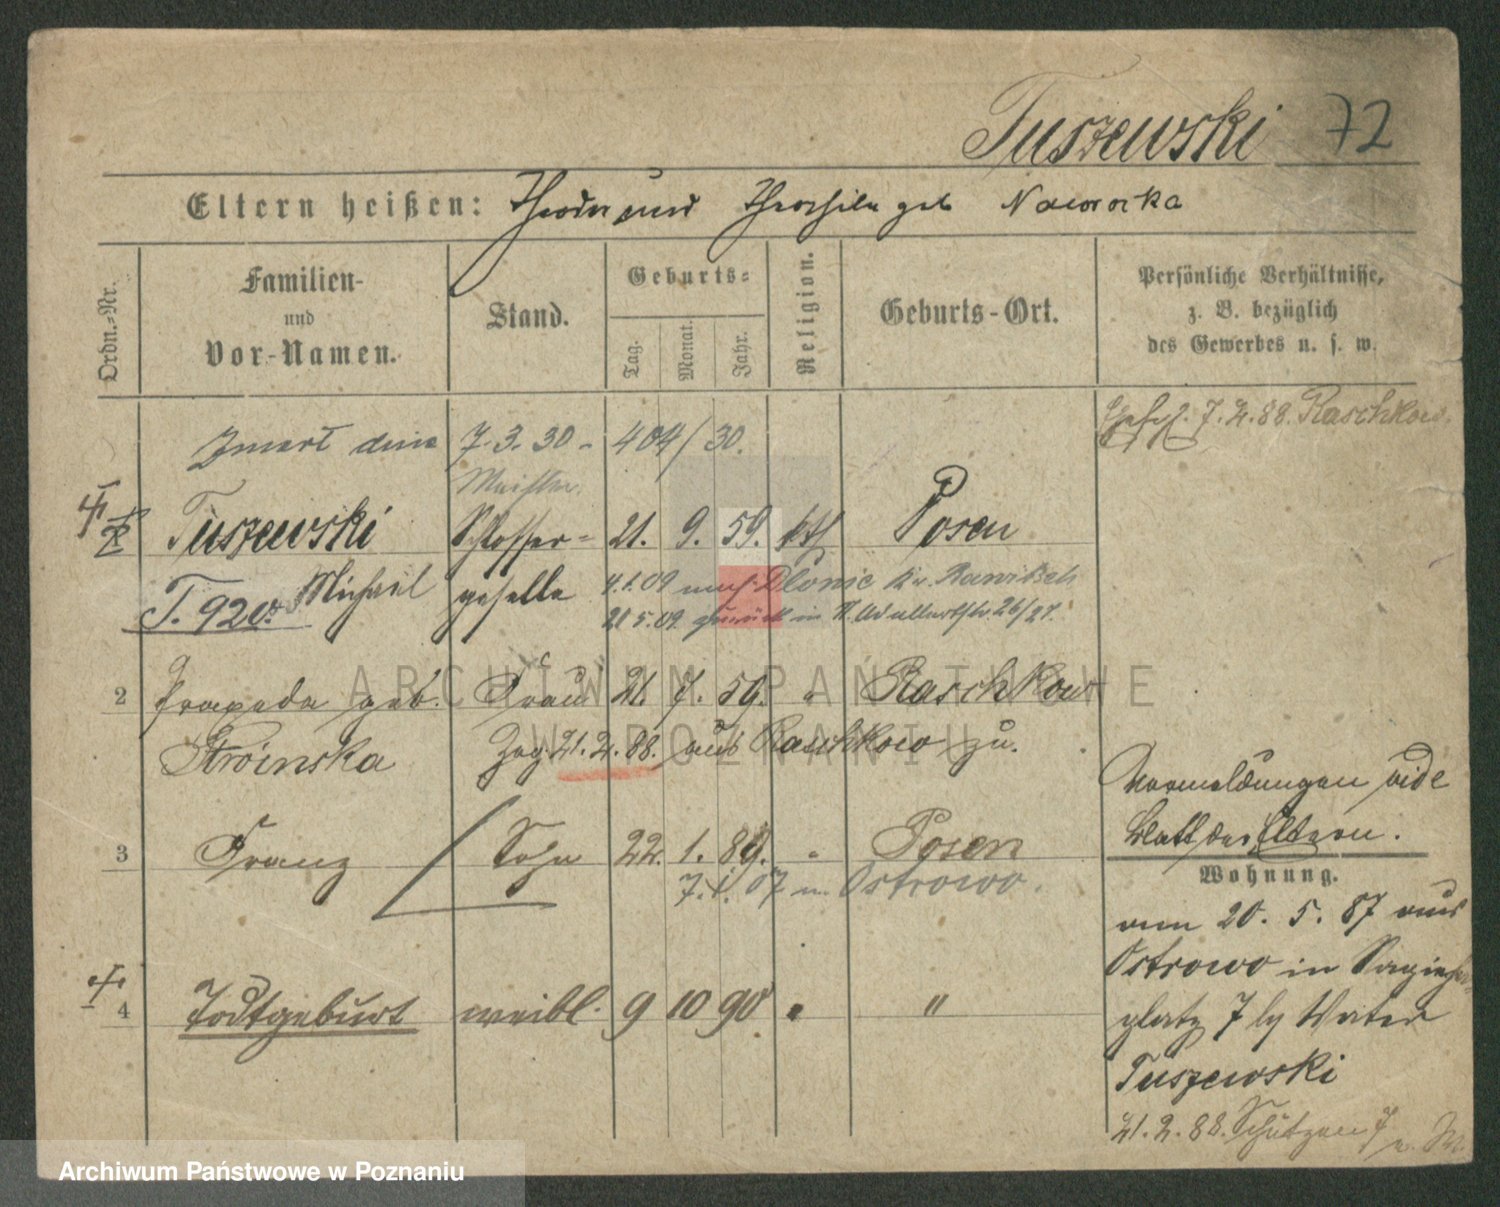 Tuszewski 72
Eltern heißen: Theodor und Theophila geb Naworska
Ordn.-Nr.
Familien-
und
Vor-Namen.
Stand.
Geburts-
Tag.
Monat.
Jahr.
Religion.
Geburts-Ort.
Persönliche Verhältnisse,
z. B. bezüglich
des Gewerbes u. s. w.
7. 2. 88. Raschkow.
Zmarł dnia 7. 3. 30 - 404/30.
Meister
Tuszewski Schlosser= 21. 9. 59. kth Posen
Michael geselle 4.1.09 nach Dlonie Kr. Rawitsch
T. 920. 21 5.09. zurück in 26/27.
2 Praxeda geb. Frau 21. 7. 59. " Raschkow
Stróinska Zug. 21. 2. 88. aus Raschkow zu.
3 Franz / Sohn 22. 1. 89. " Posen
7. 1. 07 n. Ostrowo.
4 Todtgeburt weibl. 9 10 90 " "
Vormeldungen vide
Blatt der Eltern.
Wohnung.
am 20. 5. 87 aus
Ostrowo in
platz 7 by Vater
Tuszewski
21. 2. 88. Schützen 7
ARCHIWUM PAŃSTWOWE
W POZNANIU
Archiwum Państwowe w Poznaniu